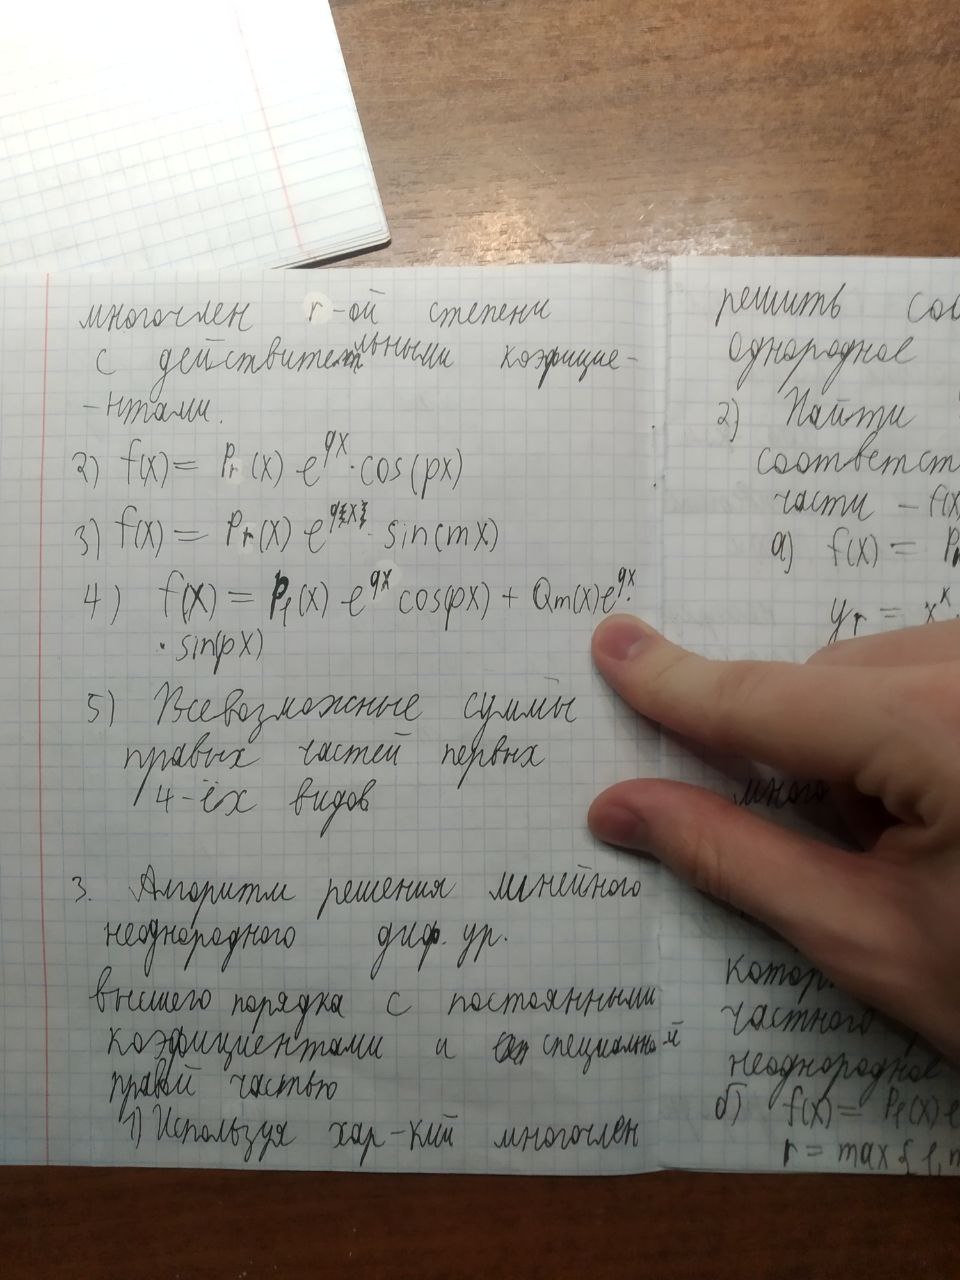 многочлен r-ой степени
с действительными коэфицие-
-нтами.
2) f(x) = Pr(x) e^qx · cos(px)
3) f(x) = Pr(x) e^qx · sin(mx)
4) f(x) = Pℓ(x) e^qx cos(px) + Qm(x)e^qx ·
· sin(px)
5) Всевозможные суммы
правых частей первых
4-ёх видов
3. Алгоритм решения линейного
неоднородного диф. ур.
высшего порядка с постоянными
коэфициентами и специально-й
правой частью
1) Используя хар-кий многочлен
решить
однородное
2) Найти
соответст
части - f(x
а) f(x) =
yr = x^k
много
котор
частного
неоднородное
б) f(x) = Pℓ(x) e
r = max{ℓ, m